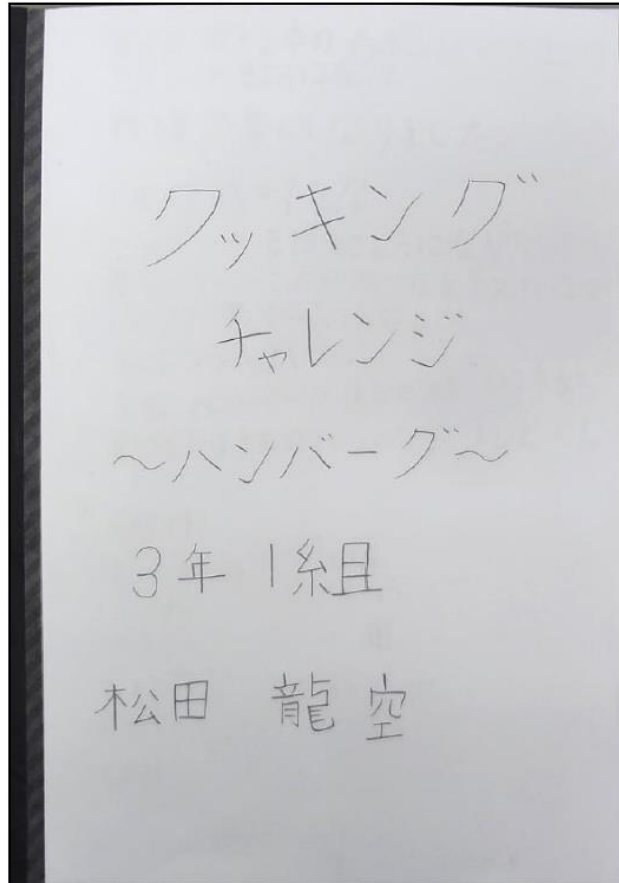 クッキング
チャレンジ
～ハンバーグ～
3年1組
松田 龍空